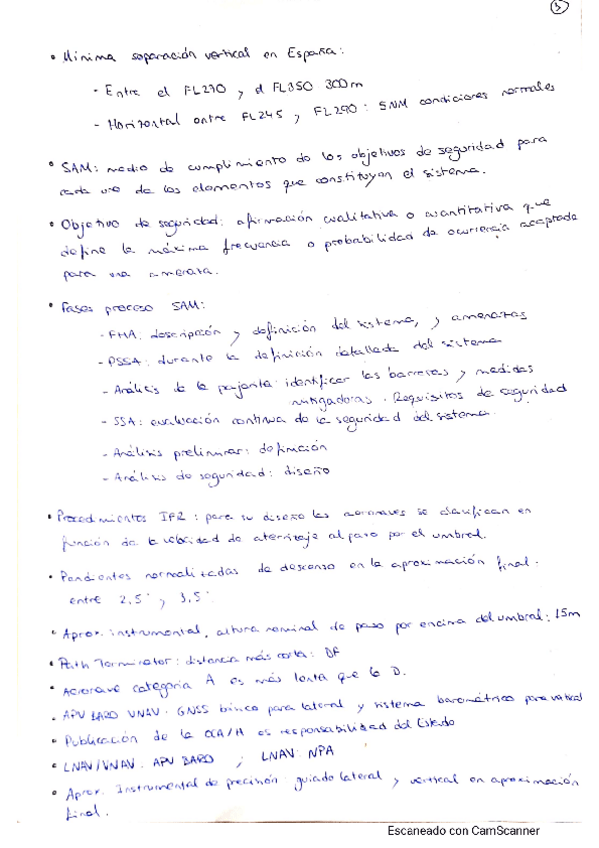 3
• Mínima separación vertical en España:
- Entre el FL290 y el FL350 300m
- Horizontal entre FL245 y FL290: 5NM condiciones normales
• SAM: medio de cumplimiento de los objetivos de seguridad para
cada uno de los elementos que constituyen el sistema.
• Objetivo de seguridad: afirmación cualitativa o cuantitativa que
define la máxima frecuencia o probabilidad de ocurrencia aceptada
para una amenaza.
• Fases proceso SAM:
- FHA: descripción y definición del sistema, y amenazas
- PSSA: durante la definición detallada del sistema
- Análisis de la pajarita: identificar las barreras y medidas
mitigadoras. Requisitos de seguridad
- SSA: evaluación continua de la seguridad del sistema.
- Análisis preliminar: definición
- Análisis de seguridad: diseño
• Procedimientos IFR: para su diseño las aeronaves se clasifican en
función de la velocidad de aterrizaje al paso por el umbral.
• Pendientes normalizadas de descenso en la aproximación final.
entre 2,5° y 3,5°
• Aprox. instrumental, altura nominal de paso por encima del umbral: 15m
• Path Terminator: distancia más corta: DF
• Aeronave categoría A es más lenta que la D.
. APV BARO VNAV. GNSS básico para lateral y sistema barométrico para vertical
• Publicación de la OCA/H es responsabilidad del Estado
• LNAV/VNAV: APV BARO ; LNAV: NPA
• Aprox. Instrumental de precisión: guiado lateral y vertical en aproximación
final.
Escaneado con CamScanner